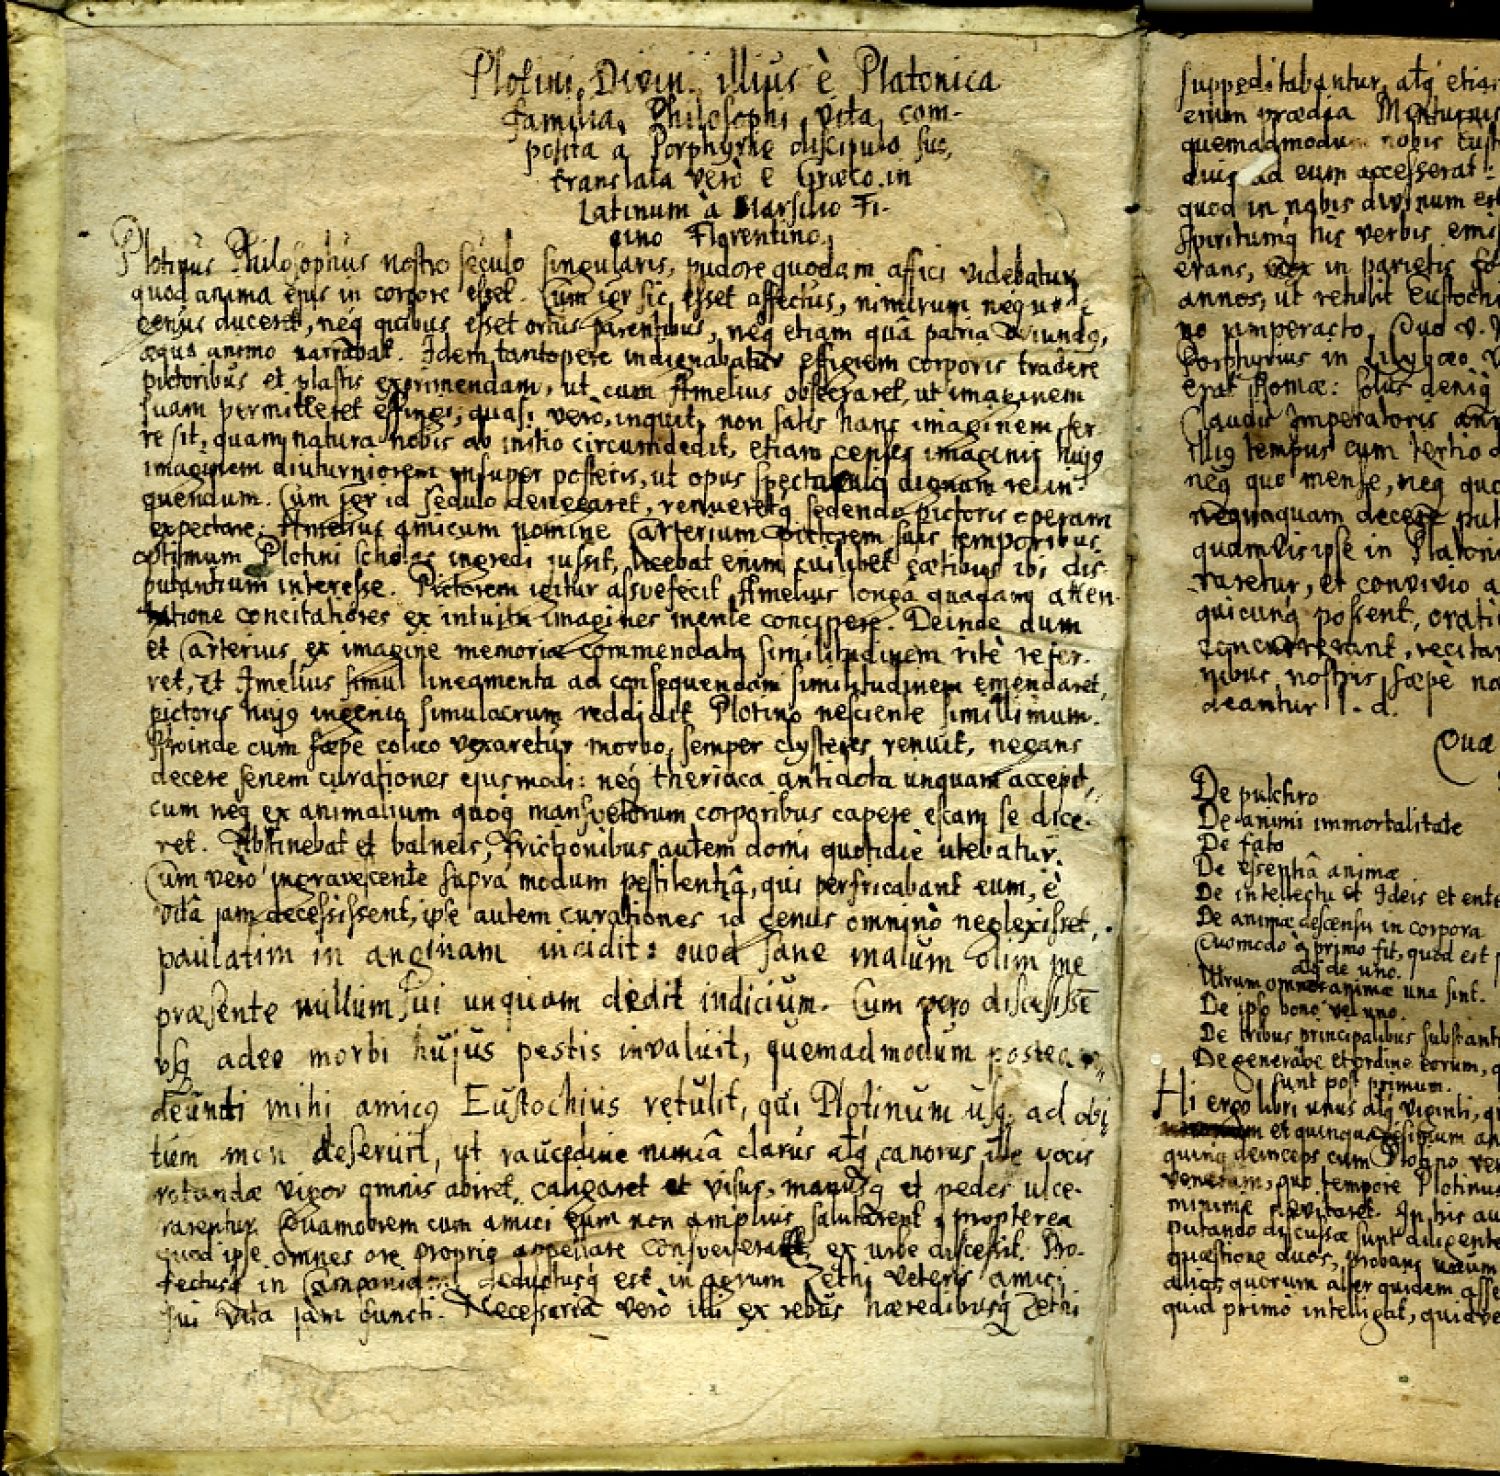 Plotini, Divini illius è Platonica
familia, Philosophi, vita, com-
posita a Porphyrie discipulo suo,
translata verò e Græco in
Latinum à Marsilio Fi-
cino Florentino.
Plotinus Philosophus nostro seculo singularis, pudore quodam affici videbatur
quod anima ejus in corpore esset. Cum igr sic esset affectus, nimirum neq unde
genus duceret, neq quibus esset ortus parentibus, neq etiam quâ patria oriundq,
æquo animo narrabat. Idem tantopere indignabatur effigiem corporis tradere
pictoribus et plastis exprimendam, ut cum Amelius obsecraret, ut imaginem
suam permitteret effingi, quasi verò, inquit, non satis hanc imaginem fer-
re sit, quam natura nobis ab initio circumdedit, etiam censes imaginis hujq
imaginem diuturniorem insuper posteris, ut opus spectaculiq dignam relin-
quendum. Cùm igr id sedulo denegaret, renueretq sedendo pictoris operam
expectare: Amelius amicum nomine Carterium pictorem suis temporibus
optimum Plotini scholas ingredi jussit, licebat enim cuilibet cætibus ibi dis-
putantium interesse. Pictorem igitur assuefecit Amelius longa quadam atten-
tatione concitatiores ex intuitu imagines mente concipere. Deinde dum
et Carterius ex imagine memoriæ commendata similitudinem ritè refer-
ret, et Amelius simul lineamenta ad consequendam similitudinem emendaret,
pictoris hujq ingenio simulacrum reddidit Plotino nesciente simillimum.
Proinde cum sæpe colico vexaretur morbo, semper clysteres renuit, negans
decere senem curationes ejusmodi: neq theriaca antidota unquam accepit,
cum neq ex animalium quoq mansvetorum corporibus capere escam se dice-
ret. Abstinebat et balneis, frictionibus autem domi quotidie utebatur.
Cum vero ingravescente supra modum pestilentiâ, qui perfricabant eum, è
vitâ jam decessissent, ipse autem curationes id genus omnino neglexisset,
paulatim in anginam incidit: quod sane malum olim me
præsente nullum sui unquam dedit indicium. Cum vero discessisse
usq adeo morbi hujus pestis invaluit, quemadmodum postea
deunti mihi amicq Eustochius retulit, qui Plotinum usq ad obi
tum non deseruit, ut raucedine nimiâ clarus atq canorus ille vocis
rotundæ vigor omnis abiret, caligaret et visus, manusq et pedes ulce-
rarentur. Quamobrem cum amici eum non amplius salutarent, propterea
quod ipse omnes ore proprio appellare consveverat, ex urbe discessit. Pro-
fectusq in Campaniam deductusq est in agrum Zethi veteris amici
sui vita jam functi. Necessaria verò illi ex rebus hæredibusq Zethi
suppeditabantur, atq etia
enim prædia Minturnis
quemadmodum nobis Eust
diuq ad eum accesserat:
quod in nobis divinum est
spiritumq his verbis emi
erans, in parietis fo
annos, ut retulit Eustochi
no imperacto.
Porphyrius in Lilybæo
erat Romæ: solus deniq
Claudii Imperatoris ann
Illiq tempus cum tertio d
neq quo mense, neq quo
nequaquam decere put
quamvis ipse in Platoni
raretur, et convivio a
quicunq possent, orati
concurrerant, recitar
nibus, nostris sæpè na
deantur l. d.
Quæ
De pulchro
De animi immortalitate
De fato
De essentiâ animæ
De intellectu et Ideis et ente
De animæ descensu in corpora
Quomodo à primo fit, quod est p
atq de uno.
Utrum omnes animæ una sint.
De ipso bono vel uno.
De tribus principalibus substanti
De generatione et ordine eorum, q
sunt post primum.
Hi ergo libri unus atq viginti, qu
et quinquagesimum an
quinq deinceps cum Plotino ver
veneram, quo tempore Plotinus
minime In his au
putando discussæ sunt diligente
quæstione duos, probans unum
alioq, quorum alter quidem asse
quid primò intelligat, quidve